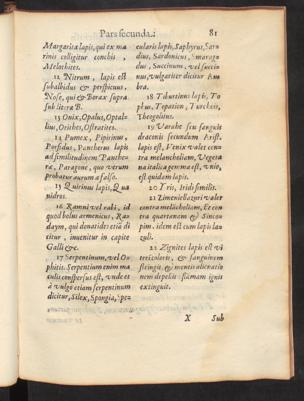 Pars secunda. 81
Margarita lapis, qui ex ma
rinis colligitur conchis ,
Melochites.
12 Nitrum, lapis est
subalbidus & perspicuus.
Nose, qui & Borax supra.
sub litera B.
13 Onix, Opalus, Optal-
lius, Orithes, Ostratites.
14 Pumex, Pipirinus,
Porfidus, Pantherus lapis
ad similitudinem Panthe-
ræ, Paragone, quo verum
probatur aurum a falso.
15 Quirinus lapis, Qua
nidros.
16 Ramni vel rabi, id
quod bolus armenicus, Ra
daym, qui donatides etiã di
citur, inuenitur in capite
Galli &c.
17 Serpentinum, vel O
phitis. Serpentium enim ma
culis conspersus est, vnde et
à vulgo etiam serpentinum
dicitur, Silex, Spongia, Spe
cularis lapis, Saphyrus, Sar
dius, Sardonicus, Smarag
dus, Succinum, vel succi
nus, vulgariter dicitur Am
bra.
18 Tiburtinus lapis, To
phus, Topatius, Turchois,
Theogolitus.
19 Varach seu sanguis
draconis secundum Arist.
lapis est, Venix valet con
tra melancholiam, Vegeta
na italica gemma est, vnio,
est quidam lapis.
20 Yris, Iridis similis.
21 Zimeniellazuri valet
contra melicholiam, Et con
tra quartanem & Sincou
pim. idem est cum lapis la
zuli.
22 Zignites lapis est vi
trei coloris, & sanguinem
stringit, & mentis alienatio
nem depellit: flãmam ignis
extinguit.
X Sub